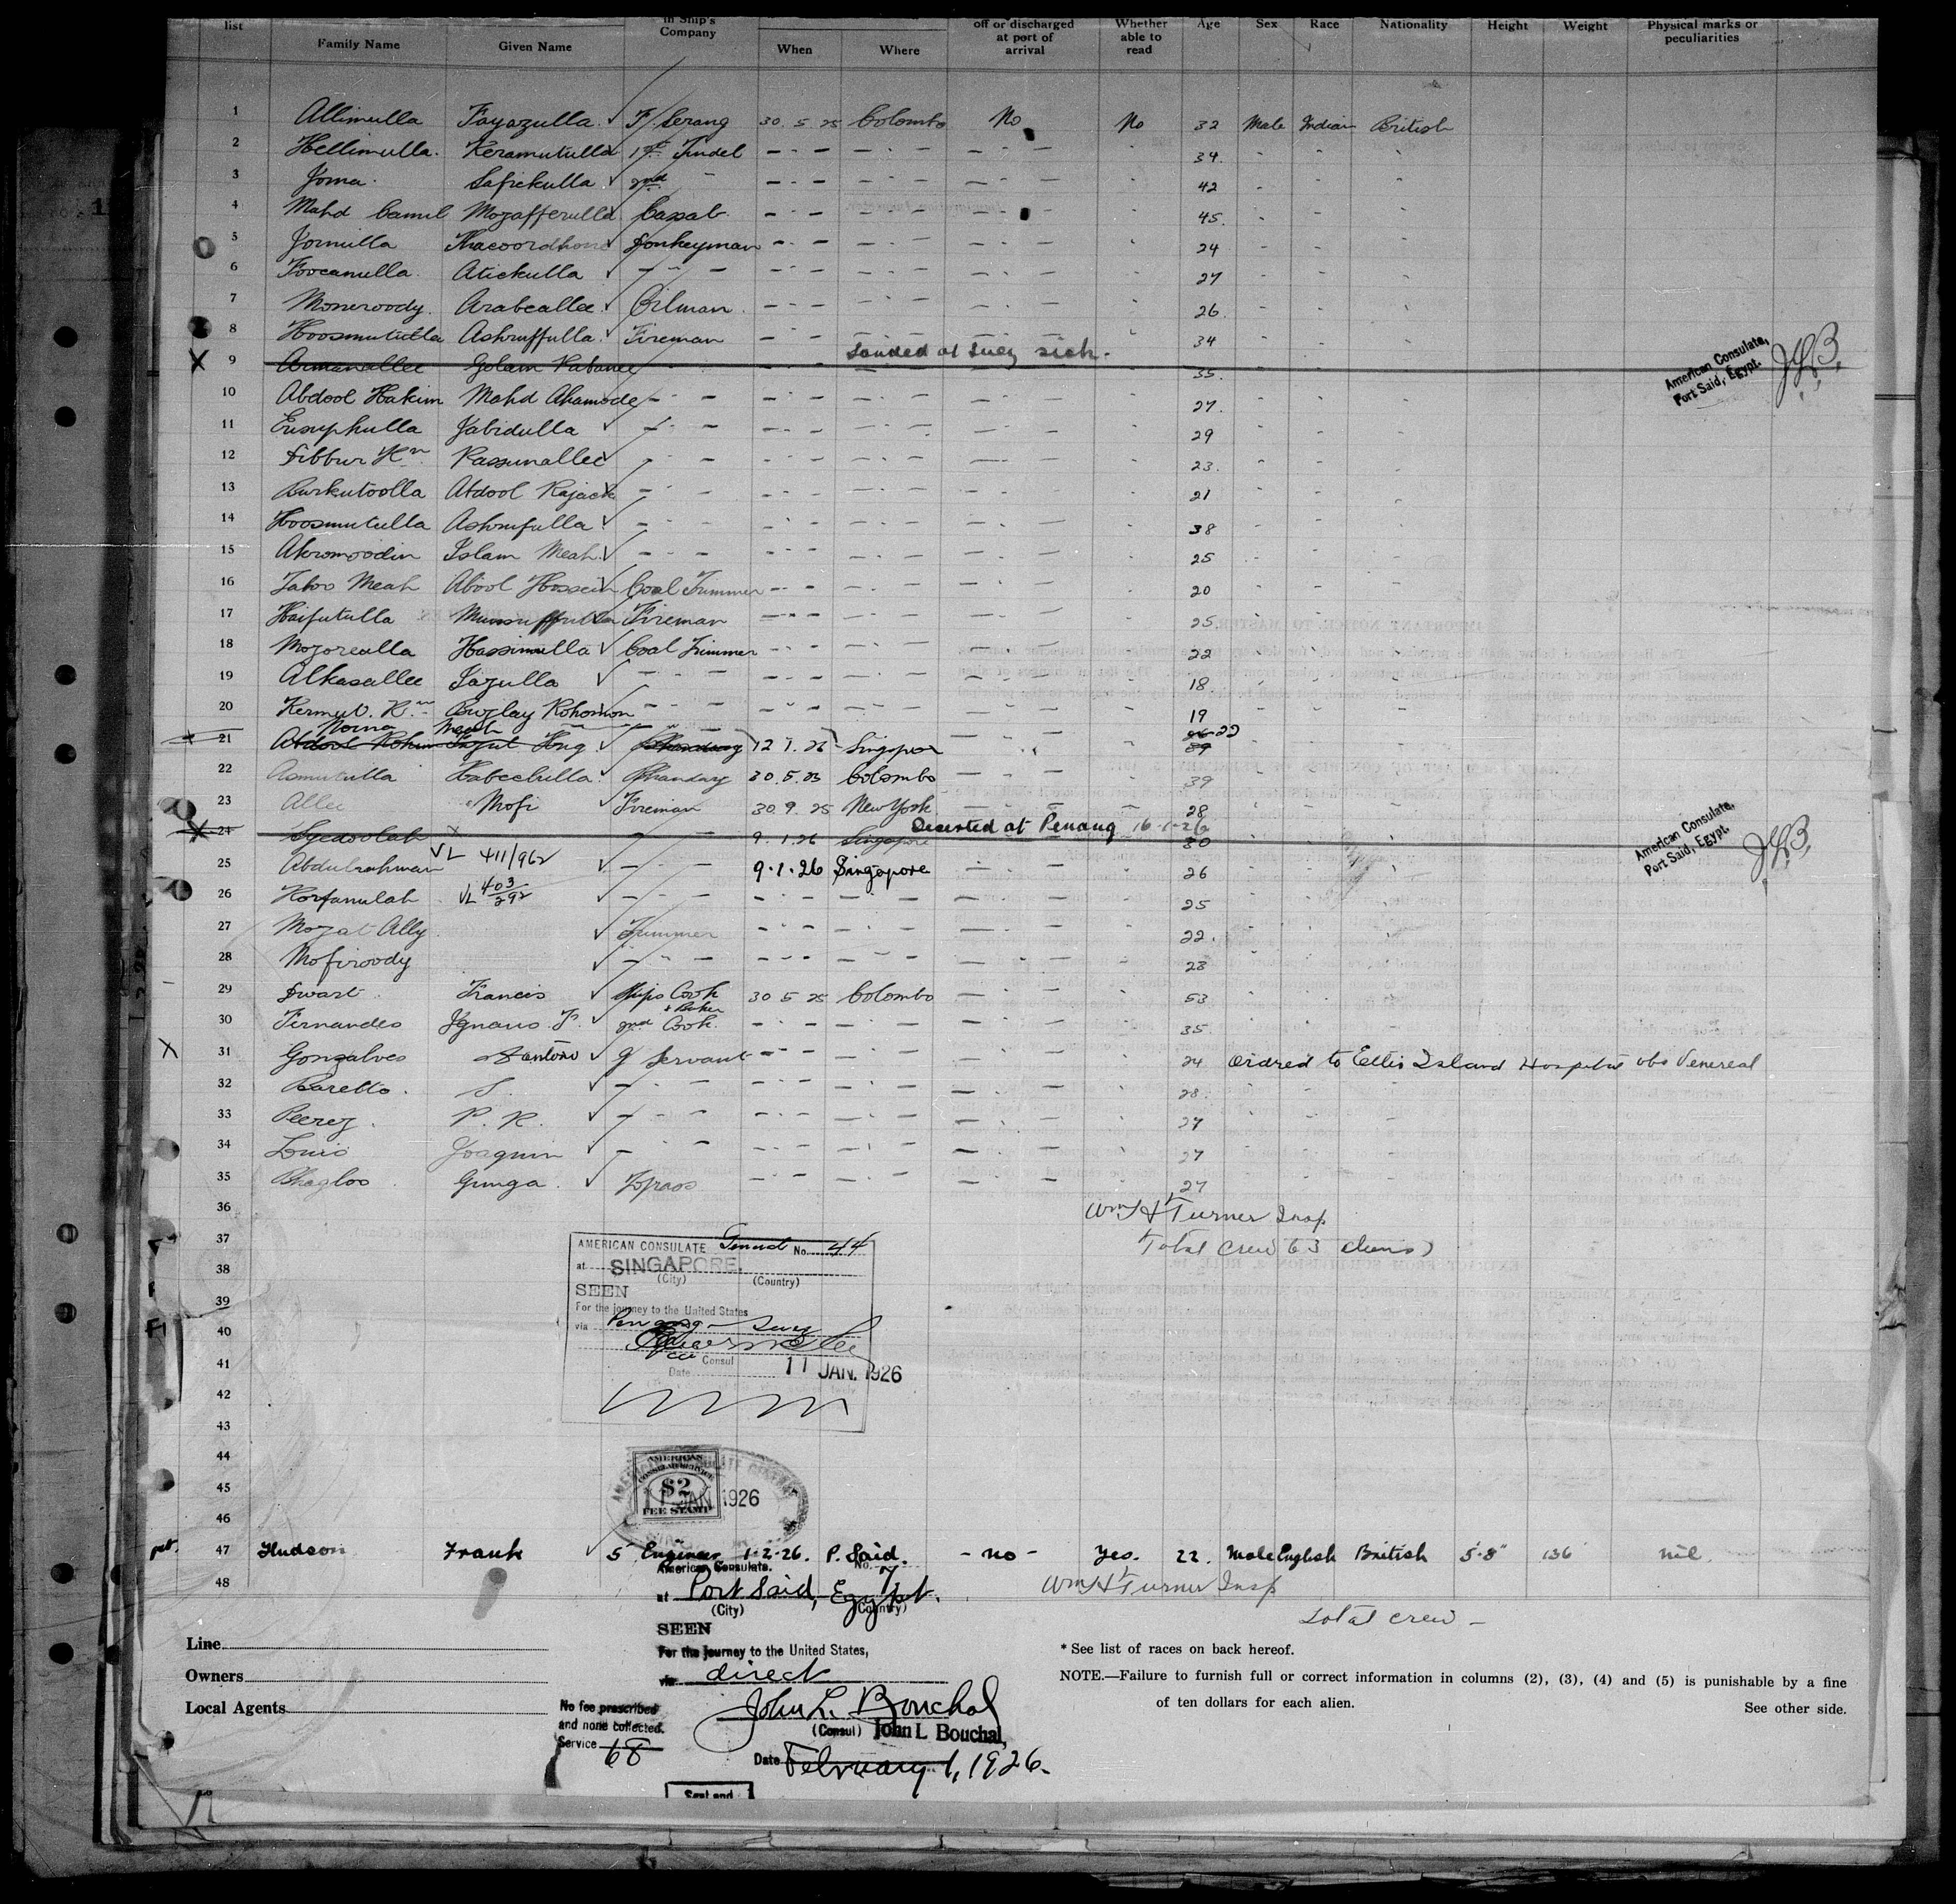 list Family Name Given Name in Ship's Company When Where off or discharged at port of arrival Whether able to read Age Sex Race Nationality Height Weight Physical marks or peculiarities
1 Allimulla Fayazulla F/ Serang 30.5.25 Colombo No No 32 Male Indian British
2 Hellimulla Keramutulla 1st Tindel 34
3 Joma Safickulla 2nd 42
4 Mahd Camil Mozafferulla Cassab 45
5 Jomulla Donkeyman 24
6 Atickulla 27
7 Moneroody Arabeallee Oilman 26
8 Hoosmutulla Ashruffulla Fireman 34
Landed at Suez sick.
9 Armanallee Golam Rabanee 35
American Consulate, Port Said, Egypt. JLB.
10 Abdool Hakim Mahd Ahamode 27
11 Eusuphulla Jabidulla 29
12 Dibbur Rn Kassimallee 23
13 Burkutoolla Abdool Rajack 21
14 Hoosmutulla Ashrufulla 38
15 Akromoodin Islam Meah 25
16 Taboo Meah Abdool Hossein Coal Trimmer 20
17 Haifutulla Munsuffulla Fireman 25
18 Mozorealla Hassimulla Coal Trimmer 22
19 Alkasallee Fazulla 18
20 Burlay Rohomon 19
Meah
21 Abdool Rohim Hug Bhandary 12 1.26 Singapore 22
22 Asmutulla Habechulla Bhandary 30.5.25 Colombo 39
23 Allee Mofi Fireman 30.9.25 New York 28
Deserted at Penang 16-1-26
24 Syedoolah 9.1.26 Singapore 30
American Consulate, Port Said, Egypt. JLB.
25 Abdulrahman VL 411/962 9.1.26 Singapore 26
26 Korfanulah VL 403/292 25
27 Mozat Ally Trimmer 22
28 Mofiroody 23
29 Dwart Francis Ships Cook & Baker 30 5 25 Colombo 53
30 Fernandes Ignacio F. 2nd Cook 35
31 Gonzalves Santono G Servant 24 ordred to Ellis Island Hospital obs Venereal
32 Baretto S. 28
33 Peerez P. R. 27
34 Louis Joaquim 27
35 Bhagloo Gunga Topaos 27
36 Wm H Turner Insp
37 Total crew 63
AMERICAN CONSULATE No. 44
38 at SINGAPORE.
(City) (Country)
SEEN
39 For the journey to the United States
40 via Penang - Suez
41 Consul
Date 11 JAN. 1926
42
43
44 AMERICAN CONSULAR SERVICE
45 $2
11 JAN 1926
46 FEE STAMP
47 Hudson Frank 5 Engineer 1-2-26. P. Said. - no - Yes. 22. Male English British 5'-8" 136 nil.
48 Wm H Turner Insp
American Consulate. No. 7
at Port Said, Egypt.
(City) (Country)
total crew -
SEEN
Line
For the journey to the United States,
* See list of races on back hereof.
Owners
via direct
NOTE.—Failure to furnish full or correct information in columns (2), (3), (4) and (5) is punishable by a fine
of ten dollars for each alien. See other side.
Local Agents
No fee prescribed
and none collected.
Service 68
John L. Bouchal
(Consul) John L Bouchal,
Date February 1, 1926.
Seal and